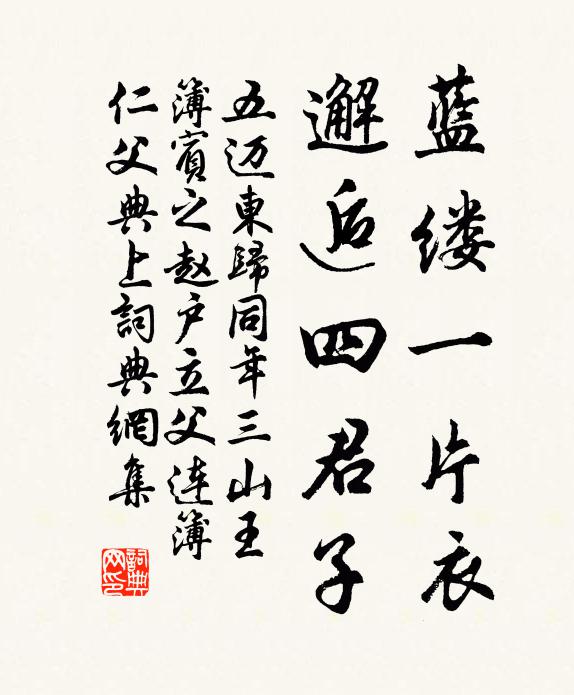 蓝缕一片衣
邂逅四君子
五迈東歸同年三山王
簿賓之赵户立父连簿
仁父典上詞典網集
詞典网印